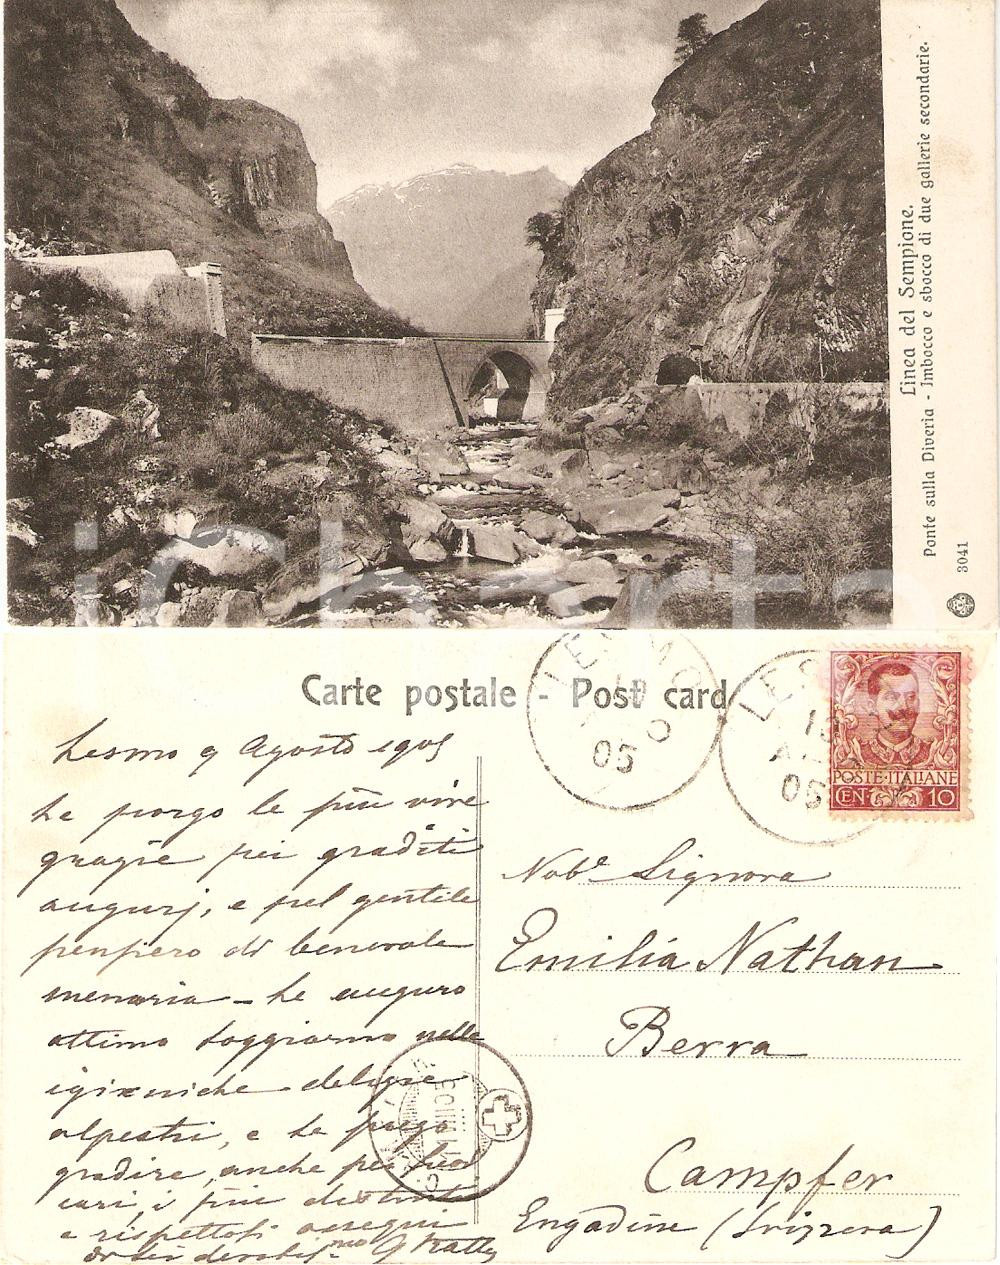 Linea del Sempione.
Ponte sulla Diveria - Imbocco e sbocco di due gallerie secondarie.
3041
iCharta
Carte postale - Post card
LESMO
05
LES
05
POSTE·ITALIANE
CEN. 10
Lesmo 9 Agosto 1905
Le porgo le più vive
grazie pei graditi
augurj, e pel gentile
pensiero di benevola
memoria - Le auguro
ottimo soggiorno nelle
igieniche delizie
alpestri, e La prego
gradire, anche pei miei
cari, i più distinti
e rispettosi ossequi
Nobe Signora
Emilia Nathan
Berra
Campfer
Engadine (Svizzera)